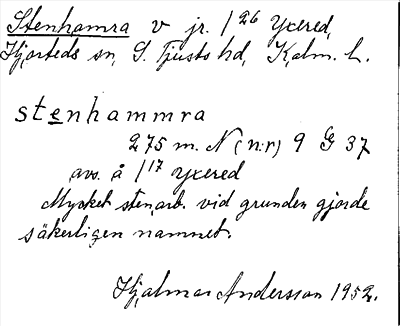 Stenhamra v jr. 1/26 Yxered,
Hjorteds sn, S. Tjusts hd, Kalm. l.
stenhammra
275 m. N (n:r) 9 G 37
avs. å 1/17 Yxered
Mycket sten,arb. vid grunden gjorde
säkerligen namnet.
Hjalmar Andersson 1952.